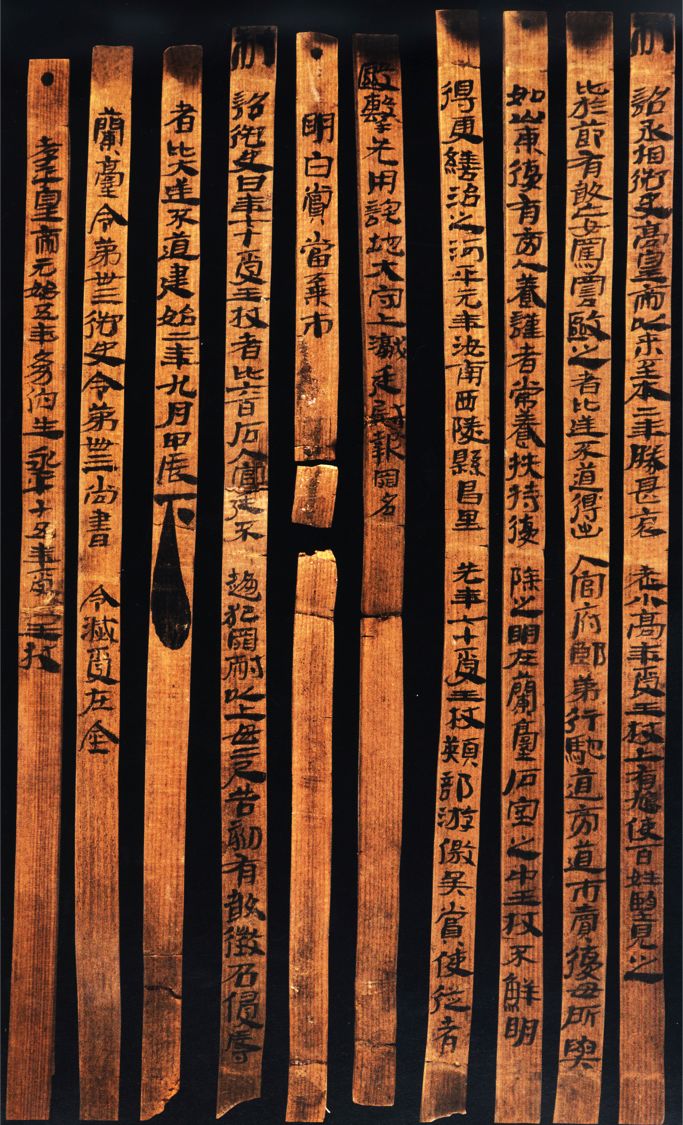 制 詔丞相御史高皇帝以來至本二年勝甚哀老小高年受王杖上有鳩使百姓望見之
比於節有敢妄罵詈毆之者比逆不道得出入官府郎第行馳道旁道市賣復毋所與
如山東復有旁人養謹者常養扶持復除之明在蘭臺石室之中王杖不鮮明
得更繕治之河平元年汝南西陵縣昌里先年七十受王杖熲部游徼吳賞使從者
毆擊先用詫地大守上讞廷尉報罪名
明白賞當棄市
制 詔御史曰年七十受王杖者比六百石入官廷不趨犯罪耐以上毋二尺告劾有敢徵召侵辱
者比大逆不道建始二年九月甲辰下
蘭臺令第卅三御史令第卌三尚書令滅受在金
孝平皇帝元始五年幼伯生永平十五年受王杖